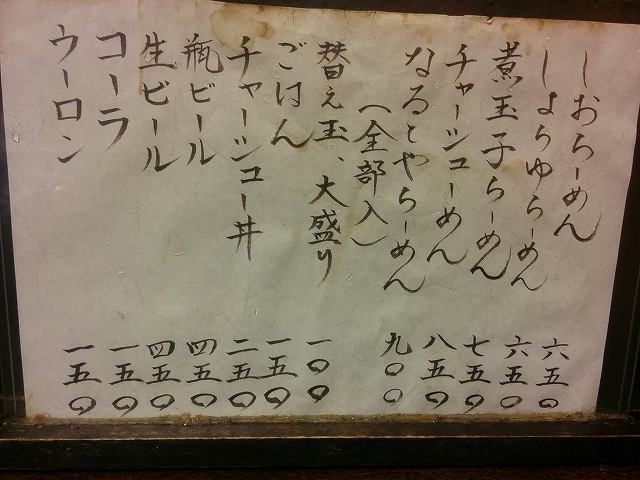 しおらーめん 六五〇
しょうゆらーめん 六五〇
煮玉子らーめん 七五〇
チャーシューめん 八五〇
なるとやらーめん 九〇〇
(全部入)
替え玉、大盛り 一〇〇
ごはん 一五〇
チャーシュー丼 二五〇
瓶ビール 四五〇
生ビール 四五〇
コーラ 一五〇
ウーロン 一五〇